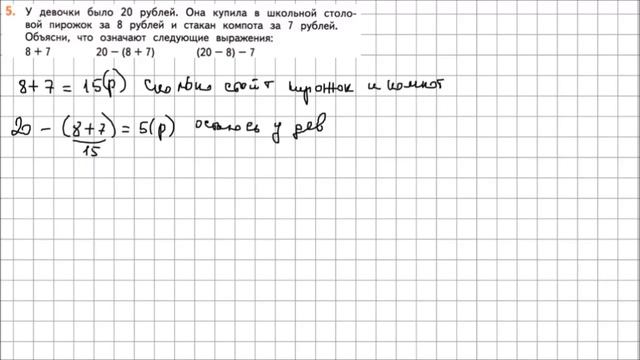 5. У девочки было 20 рублей. Она купила в школьной столо-
вой пирожок за 8 рублей и стакан компота за 7 рублей.
Объясни, что означают следующие выражения:
8 + 7 20 – (8 + 7) (20 – 8) – 7
8 + 7 = 15(р) сколько стоит пирожок и компот
20 – (8 + 7) = 5(р) осталось у дев
15